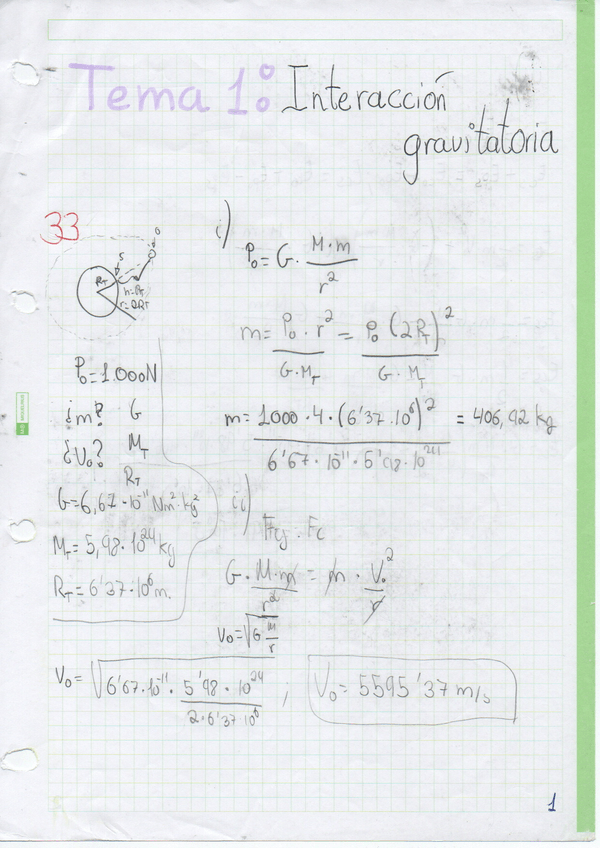 Tema 1: Interacción
gravitatoria
33
R_T
S
0
h=R_T
r=2R_T
P₀=1.000N
¿m? G
¿v₀? M_T
R_T
G=6,67·10⁻¹¹ Nm²·kg²
M_T=5,98·10²⁴kg
R_T=6'37·10⁶m.
i)
P₀=G· M·m / r²
m= P₀·r² / G·M_T = P₀(2R_T)² / G·M_T
m= 1000·4·(6'37·10⁶)² / 6'67·10⁻¹¹·5'98·10²⁴ = 406,92 kg
ii)
Fg=Fc
G· M·m / r² = m· V₀² / r
V₀=√(G M / r)
V₀= √(6'67·10⁻¹¹· 5'98·10²⁴ / 2·6'37·10⁶) ; V₀=5595'37 m/s
1